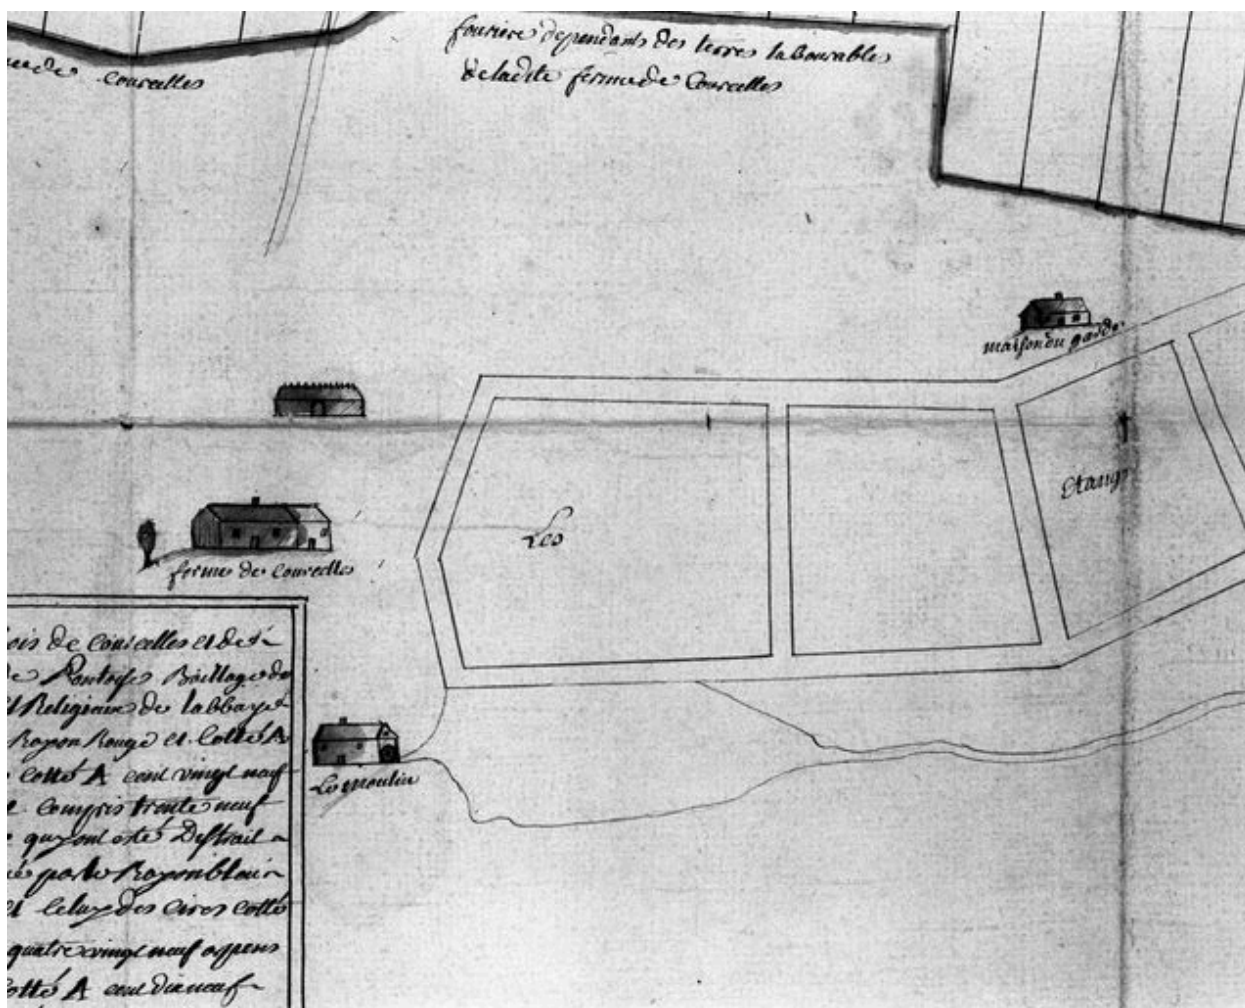 fouriere dependants des terres labourables
de ladite ferme de Courcelles
de Courcelles
maison du garde
Etangs
Les
ferme de Courcelles
Le Moulin
bois de Courcelles et de
de Pontoise Bailliage de
et Religieux de labbaye
Rayon Rouge et Cotté A
cotté A cent vingt neuf
compris trente neuf
quy ont esté Distrait
par le Rayon bleu
et celuy des cires cotté
quatre vingt neuf arpens
Cotté A cent dix neuf